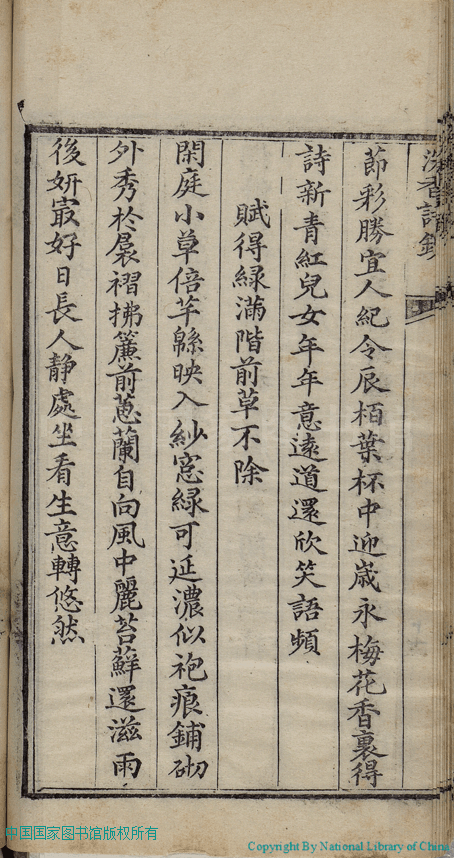 節彩勝宜人紀令辰栢葉杯中迎歲永梅花香裏得
詩新青紅兒女年年意遠道還欣笑語頻
賦得綠滿階前草不除
閑庭小草倍芊緜映入紗窓綠可延濃似袍痕鋪砌
外秀於裠褶拂簾前蕙蘭自向風中麗苔蘚還滋雨
後妍㝡好日長人靜處坐看生意轉悠然
中国国家图书馆版权所有
Copyright By National Library of China